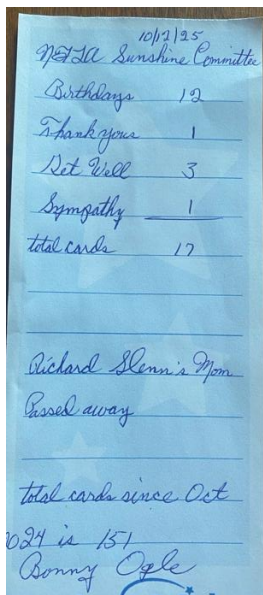 10/12/25
NETA Sunshine Committee
Birthdays 12
Thank yous 1
Get Well 3
Sympathy 1
total cards 17
Richard Glenn's Mom
Passed away
total cards since Oct
2024 is 151
Bonny Ogle